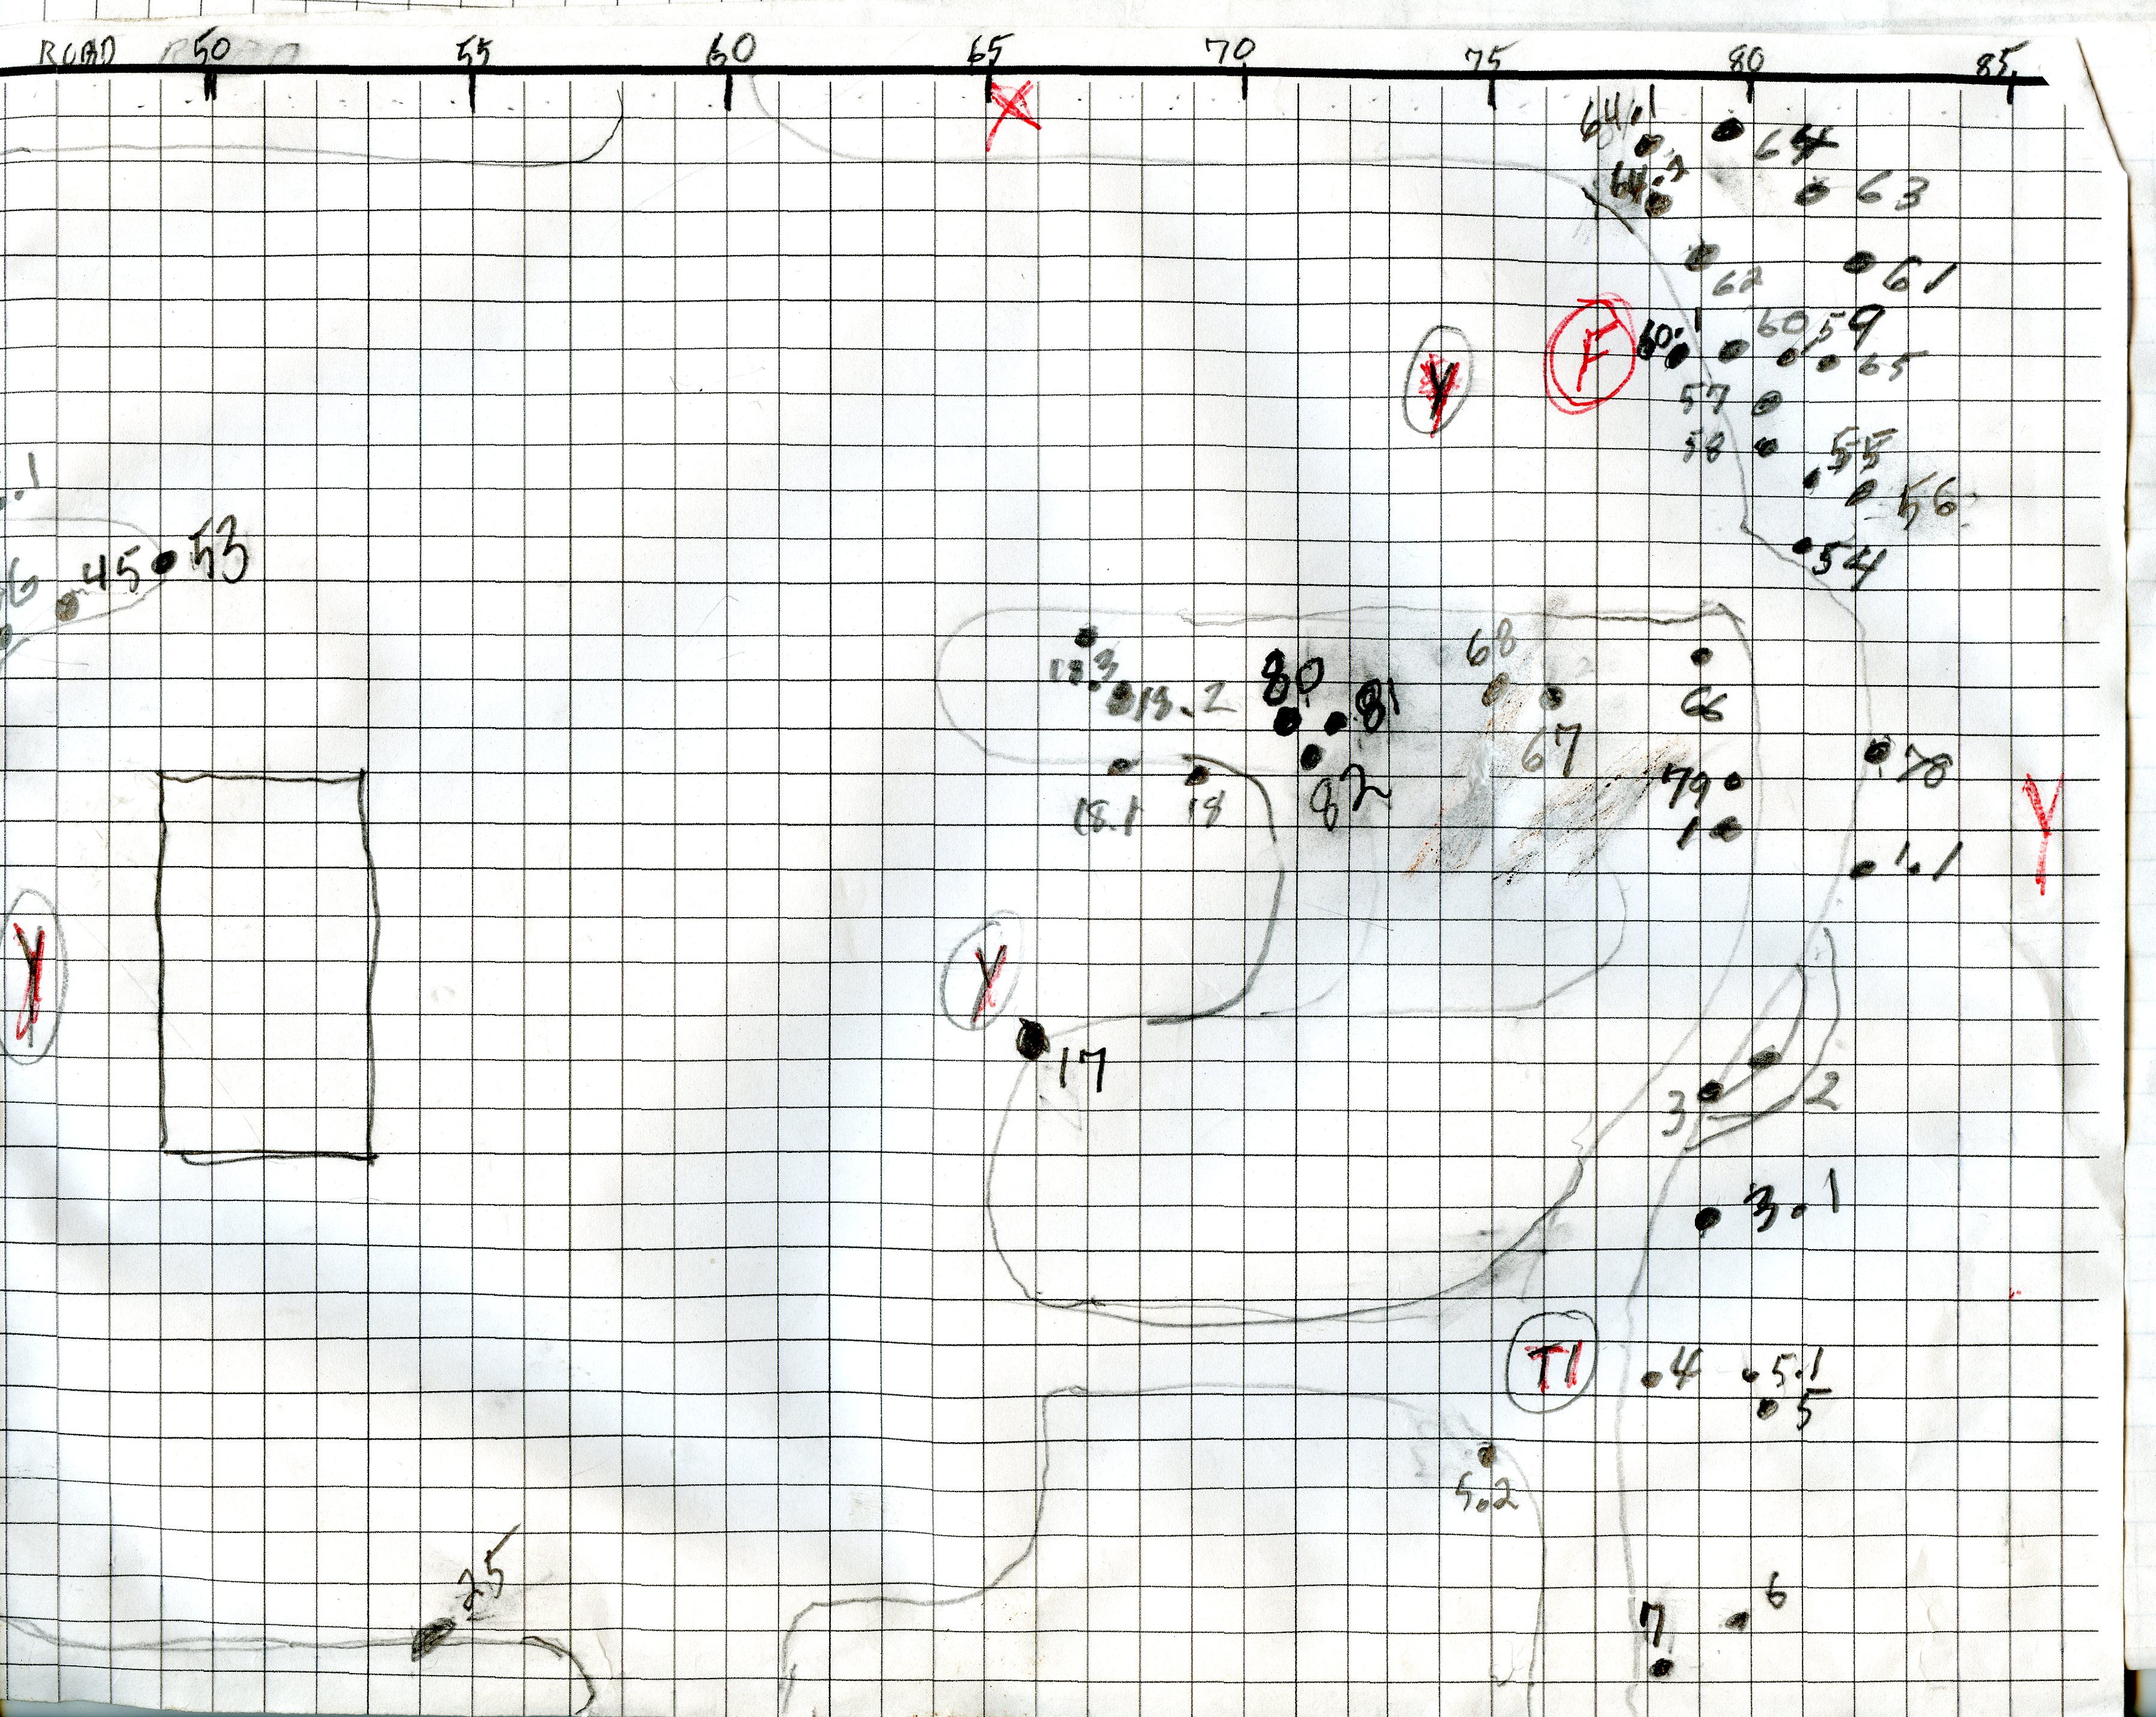 ROAD 50 55 60 65 70 75 80 85
X
64.1 64
64.2 63
62 61
F 60.1 60 59
Y 65
57
58 55
56
.1
45 53 54
68
18.3 18.2 80 81 66
67
82 79 78
18.1 18 1 Y
1.1
Y Y
17
3 2
3.1
T1 4 5.1
5
5.2
25
7 6